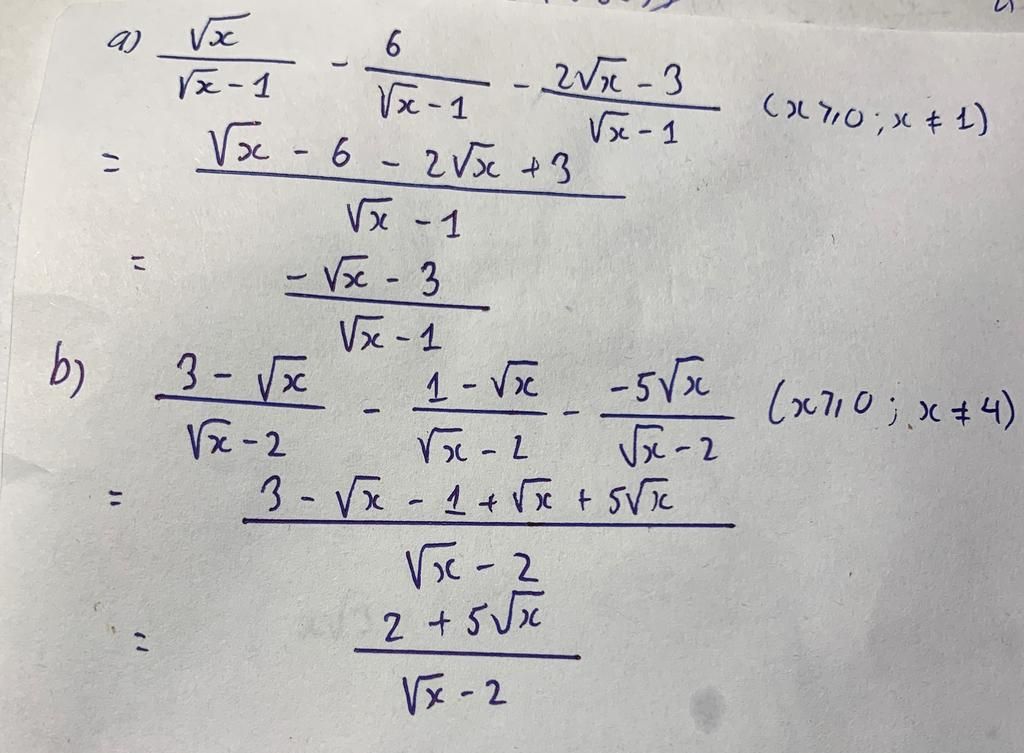 a) √x / (√x - 1) - 6 / (√x - 1) - (2√x - 3) / (√x - 1) (x ⩾ 0 ; x ≠ 1)
= (√x - 6 - 2√x + 3) / (√x - 1)
= (-√x - 3) / (√x - 1)
b) (3 - √x) / (√x - 2) - (1 - √x) / (√x - 2) - (-5√x) / (√x - 2) (x ⩾ 0 ; x ≠ 4)
= (3 - √x - 1 + √x + 5√x) / (√x - 2)
= (2 + 5√x) / (√x - 2)